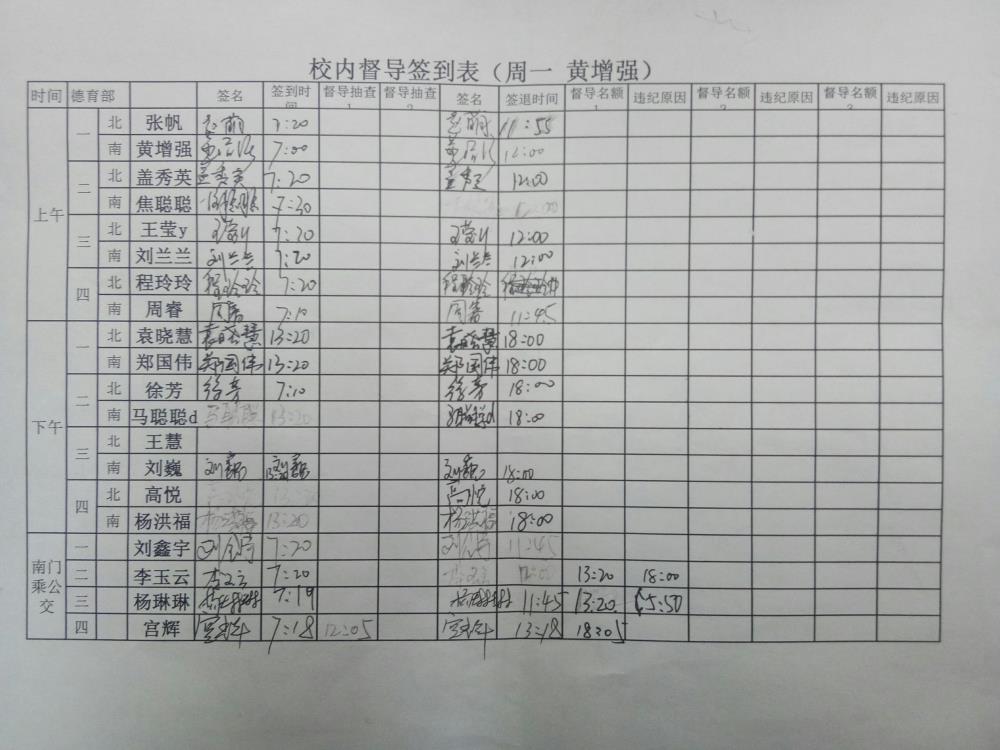 校内督导签到表（周一 黄增强）
时间 德育部 签名 签到时间 督导抽查1 督导抽查2 签名 签退时间 督导名额1 违纪原因 督导名额2 违纪原因 督导名额3 违纪原因
上午 一 北 张帆 7:20 11:55
南 黄增强 7:00 12:00
二 北 盖秀英 盖秀英 7:20 12:00
南 焦聪聪 7:30 12:00
三 北 王莹y 王莹y 7:20 王莹y 12:00
南 刘兰兰 刘兰兰 7:20 刘兰兰 12:00
四 北 程玲玲 程玲玲 7:20 程玲玲
南 周睿 周睿 7:10 周睿 11:45
下午 一 北 袁晓慧 袁晓慧 13:20 袁晓慧 18:00
南 郑国伟 郑国伟 13:20 郑国伟 18:00
二 北 徐芳 徐芳 7:10 徐芳 18:00
南 马聪聪d 马聪聪 13:20 马聪聪d 18:00
三 北 王慧
南 刘巍 刘巍 刘巍 18:00
四 北 高悦 高悦 18:00
南 杨洪福 杨洪福 13:20 杨洪福 18:00
南门乘公交 一 刘鑫宇 刘鑫宇 7:20 11:45
二 李玉云 李玉云 7:20 李玉云 12:00 13:20 18:00
三 杨琳琳 杨琳琳 7:19 杨琳琳 11:45 13:20 15:50
四 宫辉 宫辉 7:18 12:05 宫辉 13:18 18:05